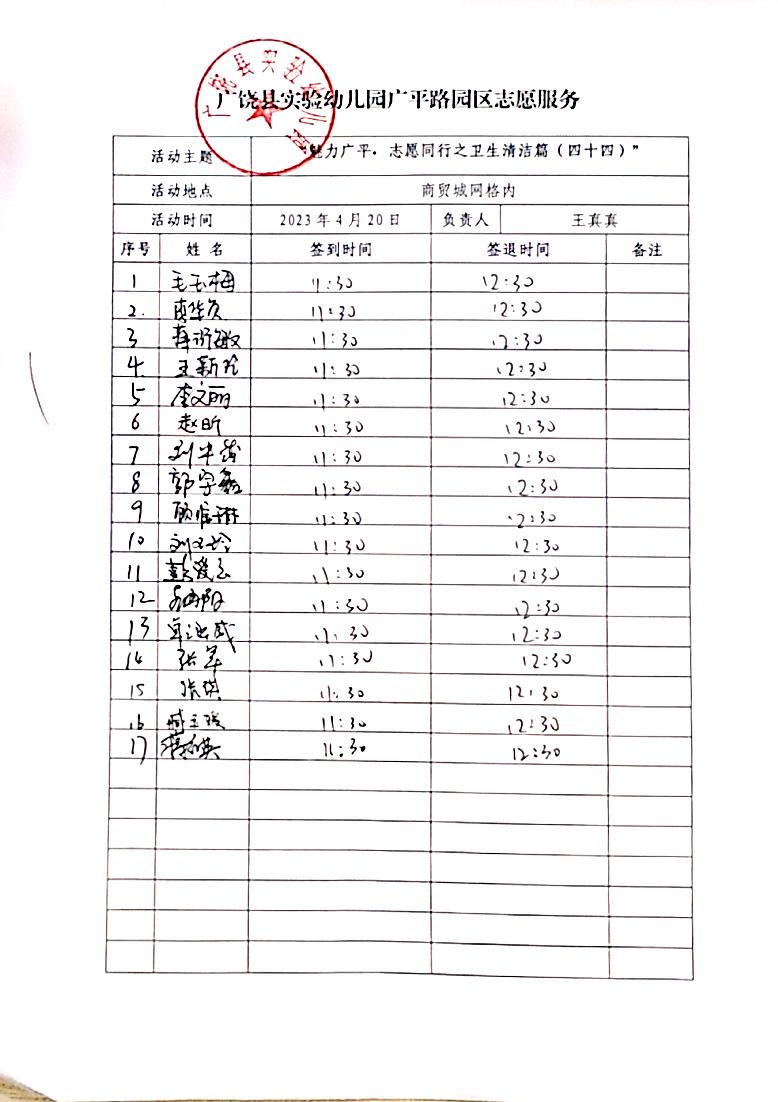 广饶县实验幼儿园
广饶县实验幼儿园广平路园区志愿服务
活动主题 “魅力广平·志愿同行之卫生清洁篇（四十四）”
活动地点 商贸城网格内
活动时间 2023年4月20日 负责人 王真真
序号 姓名 签到时间 签退时间 备注
1 毛玉梅 11:30 12:30
2. 11:30 12:30
3 11:30 12:30
4. 王新玲 11:30 12:30
5 李文丽 11:30 12:30
6 赵昕 11:30 12:30
7 11:30 12:30
8 11:30 12:30
9 11:30 12:30
10 11:30 12:30
11 11:30 12:30
12 11:30 12:30
13 11:30 12:30
14 张军 11:30 12:30
15 张琪 11:30 12:30
16 11:30 12:30
17 11:30 12:30